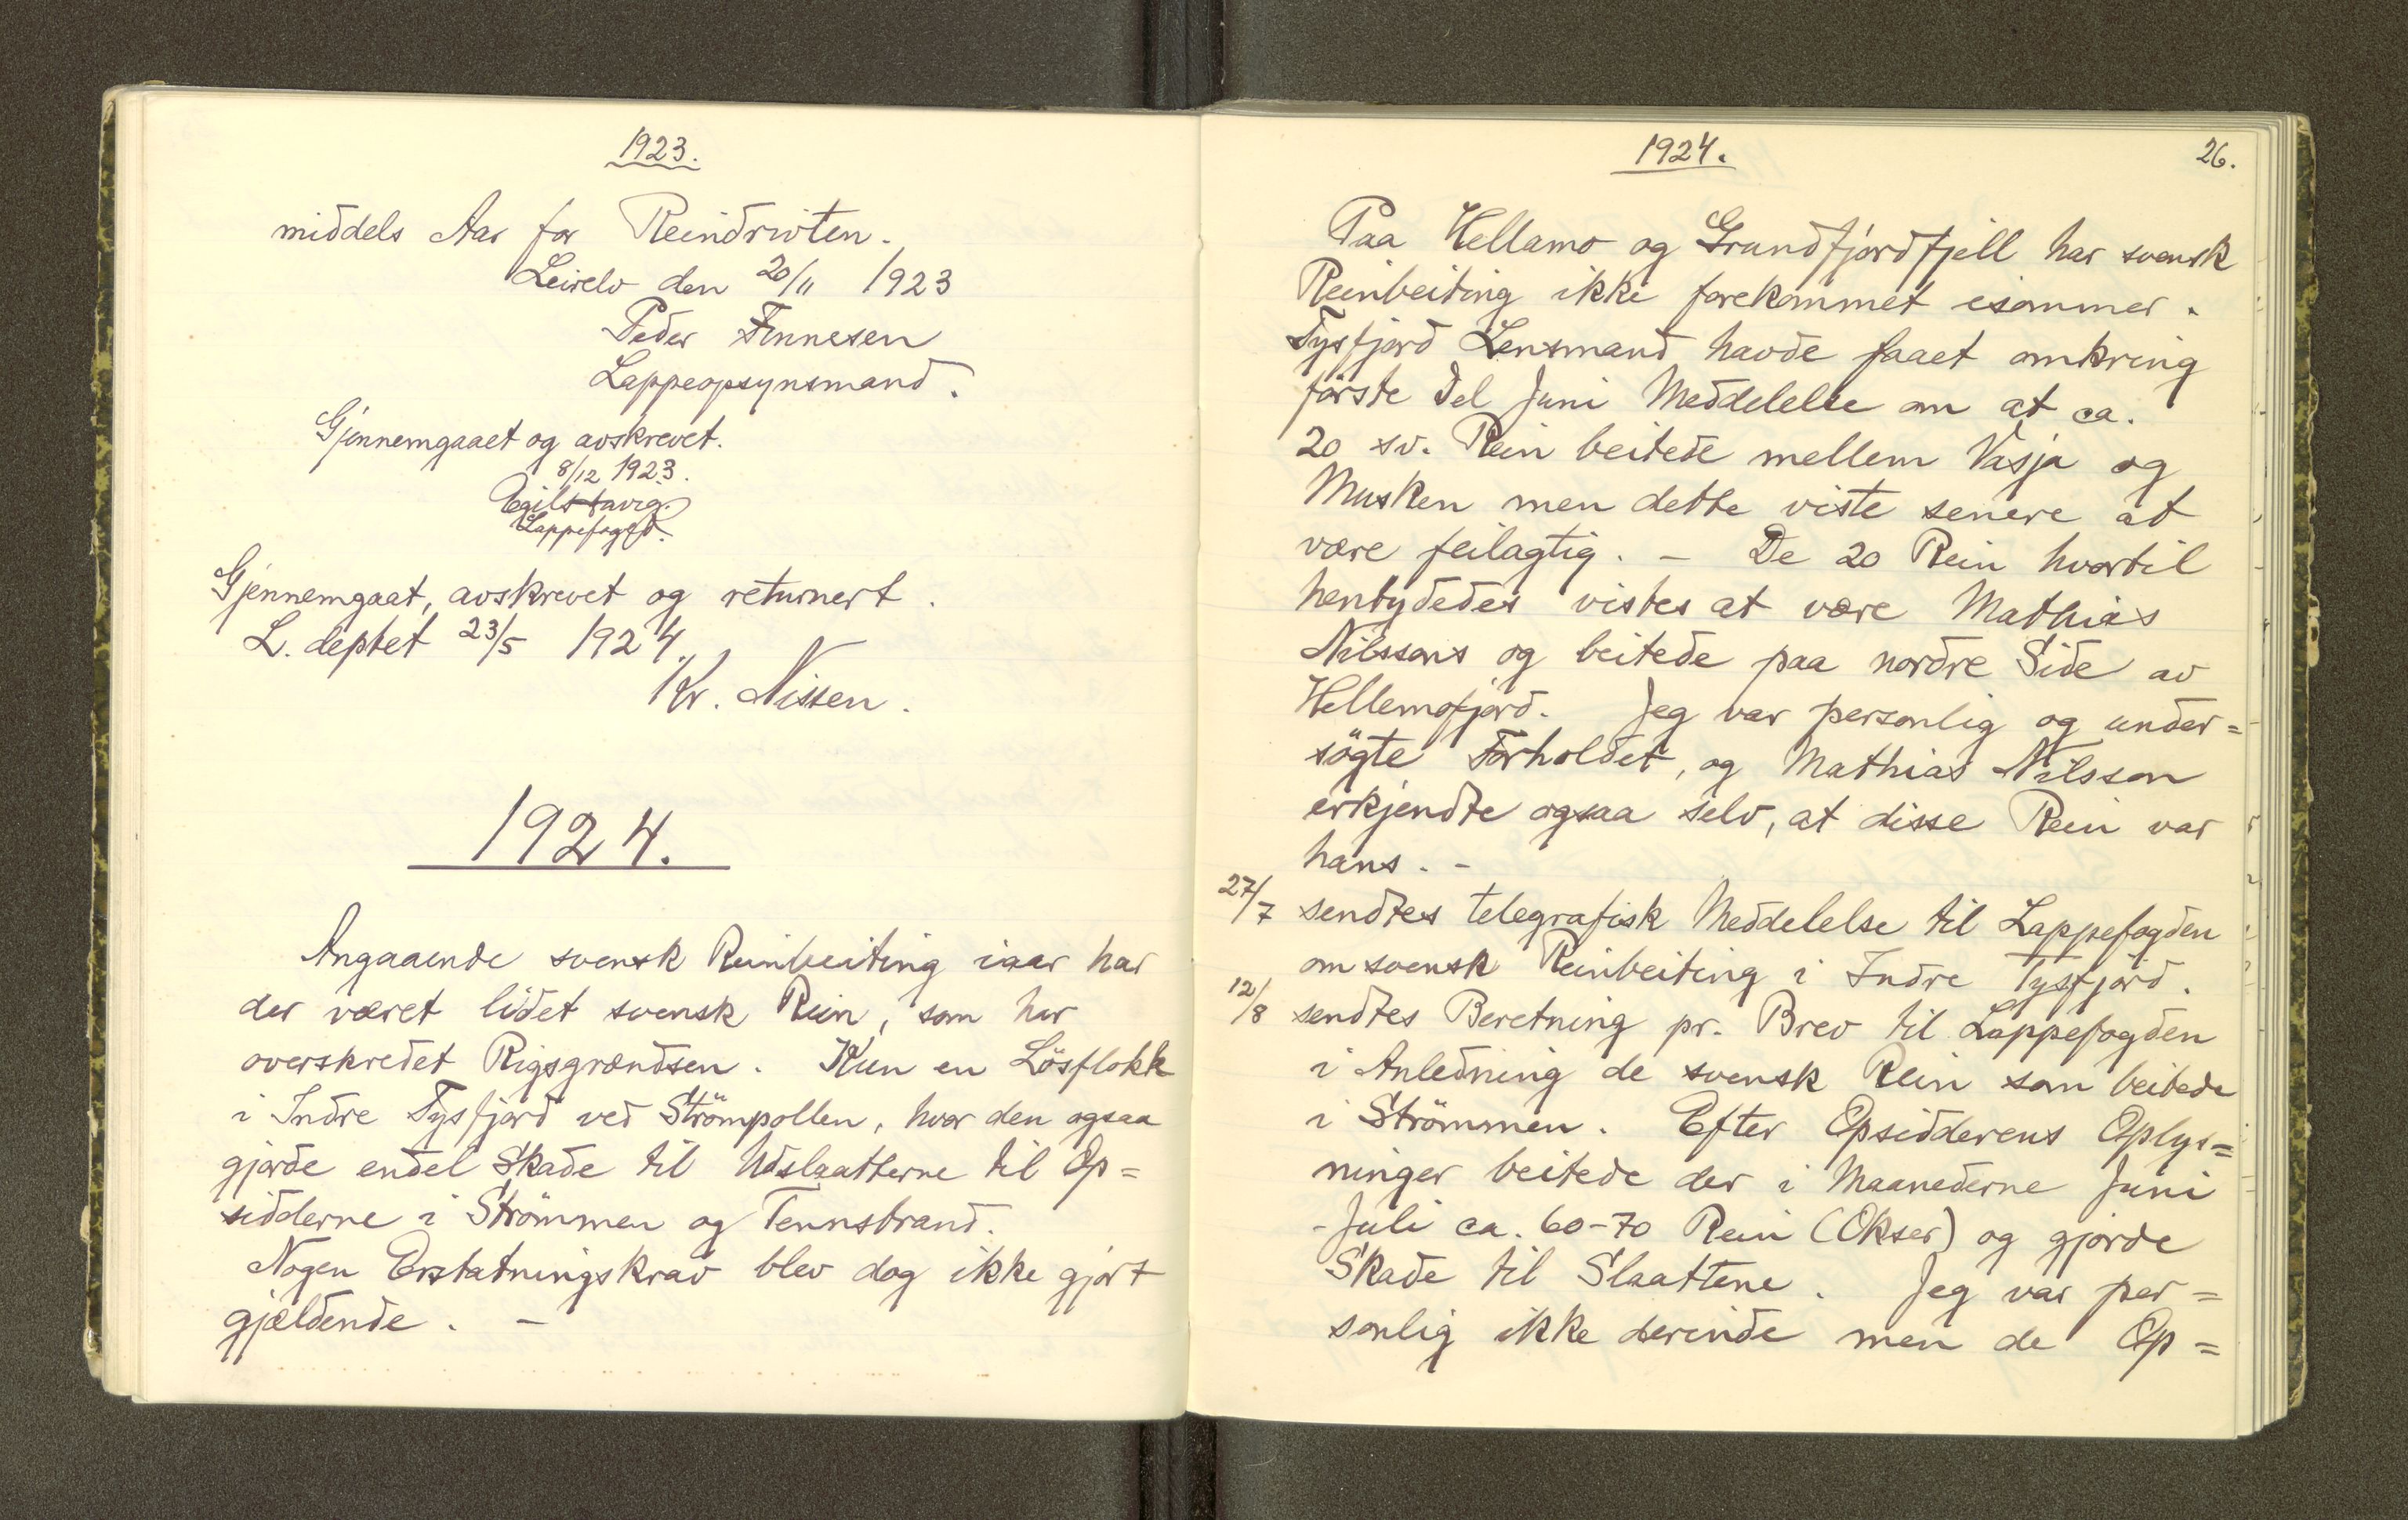 1923.
middels Aar for Reindrivten.
Leirelv den 20/11 1923
Peder Finnesen
Lappeopsynsmand.
Gjennemgaaet og avskrevet.
8/12 1923.
Egil
Lappefogd.
Gjennemgaat, avskrevet og returnert.
L. deptet 23/5 1924.
Kr. Nissen.
1924.
Angaaende svensk Reinbeiting iaar har
der været lidet svensk Rein, som har
overskredet Rigsgrændsen. Kun en Lösflokk
i Indre Tysfjord ved Strömpollen, hvor den ogsaa
gjorde endel Skade til Udslaatterne til Op=
sidderne i Strömmen og Tennstrand.
Nogen Erstatningskrav blev dog ikke gjort
gjældende. -
1924.
26.
Paa Hellamo og Grundfjordfjell har svensk
Reinbeiting ikke forekommet isommer.
Tysfjord Lensmand havde faaet omkring
förste Del Juni Meddelelse om at ca.
20 sv. Rein beitede mellem Vasja og
Musken men dette viste senere at
være feilagtig. - De 20 Rein hvortil
hentydedes vistes at være Mathias
Nilssons og beitede paa nordre Side av
Hellemofjord. Jeg var personlig og under=
sögte Forholdet, og Mathias Nilsson
erkjendte ogsaa selv, at disse Rein var
hans. -
27/7 sendtes telegrafisk Meddelelse til Lappefogden
om svensk Reinbeiting i Indre Tysfjord.
12/8 sendtes Beretning pr. Brev til Lappefogden
i Anledning de svensk Rein som beitede
i Strömmen. Efter Opsidderens Oplys=
ninger beitede der i Maanederne Juni
- Juli ca. 60-70 Rein (Okser) og gjorde
Skade til Slaattene. Jeg var per=
sonlig ikke derinde men de Op=